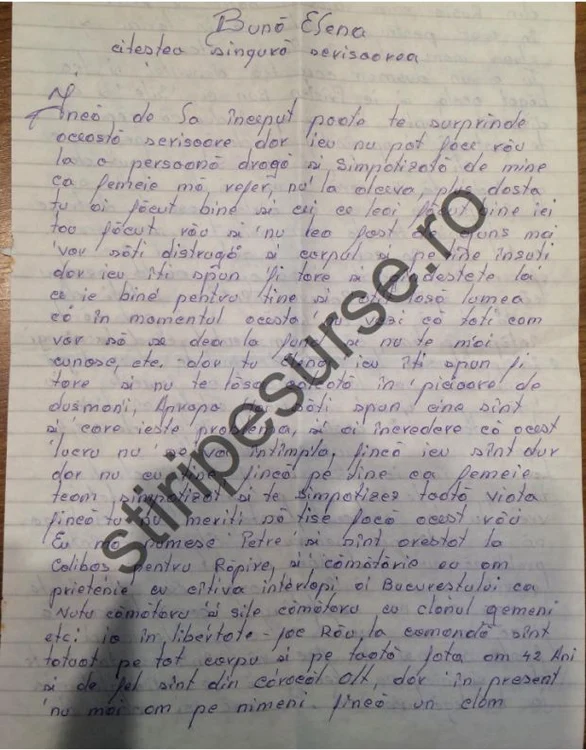 Bună Elena
citeștea singură scrisoarea
Încă, de la început poate te surprinde
această scrisoare dar ieu nu pot face rău
la o persoană dragă si simpatizată de mine
ca femeie mă refer, nu la alceva, plus dasta
tu ai făcut bine si cei ce leai făcut bine iei
tau făcut rău si nu leo fost de ajuns mai
vor săti distrugă si corpul si pe tine însuti
dar ieu îti spun fi tare si gîndestete la
ce ie bine pentru tine si lasă lumea
că în momentul acesta nu vesi că toti cam
vor să se dea la fund si nu te mai
cunosc, etc. dar tu ieu îti spun fi
tare si nu te lăsa călcată în picioare de
dusmani, Apropo săti spun cine sînt
si care ieste problema, si ai încredere că acest
lucru nu se va întîmpla, fincă ieu sînt dur
dar nu cu tine, fincă pe tine ca femeie
team simpatizat si te simpatizez toată viata
fincă tu nu meriti să tise facă acest rău
Eu mă numesc Petre si sînt arestat la
Colibas pentru Răpire, si cămătărie eu am
prietenie cu cîtiva interlopi ai Bucurestului ca
Nutu cămătaru si sile cămătaru cu clanul gemeni
etc; ie în libertate - fac Rău la comandă sînt
tatuat pe tot corpu si pe toată fata am 42 Ani
si de fel sînt din căracăl Olt, dar în present
nu mai am pe nimeni fincă un clam
stiripesurse.ro